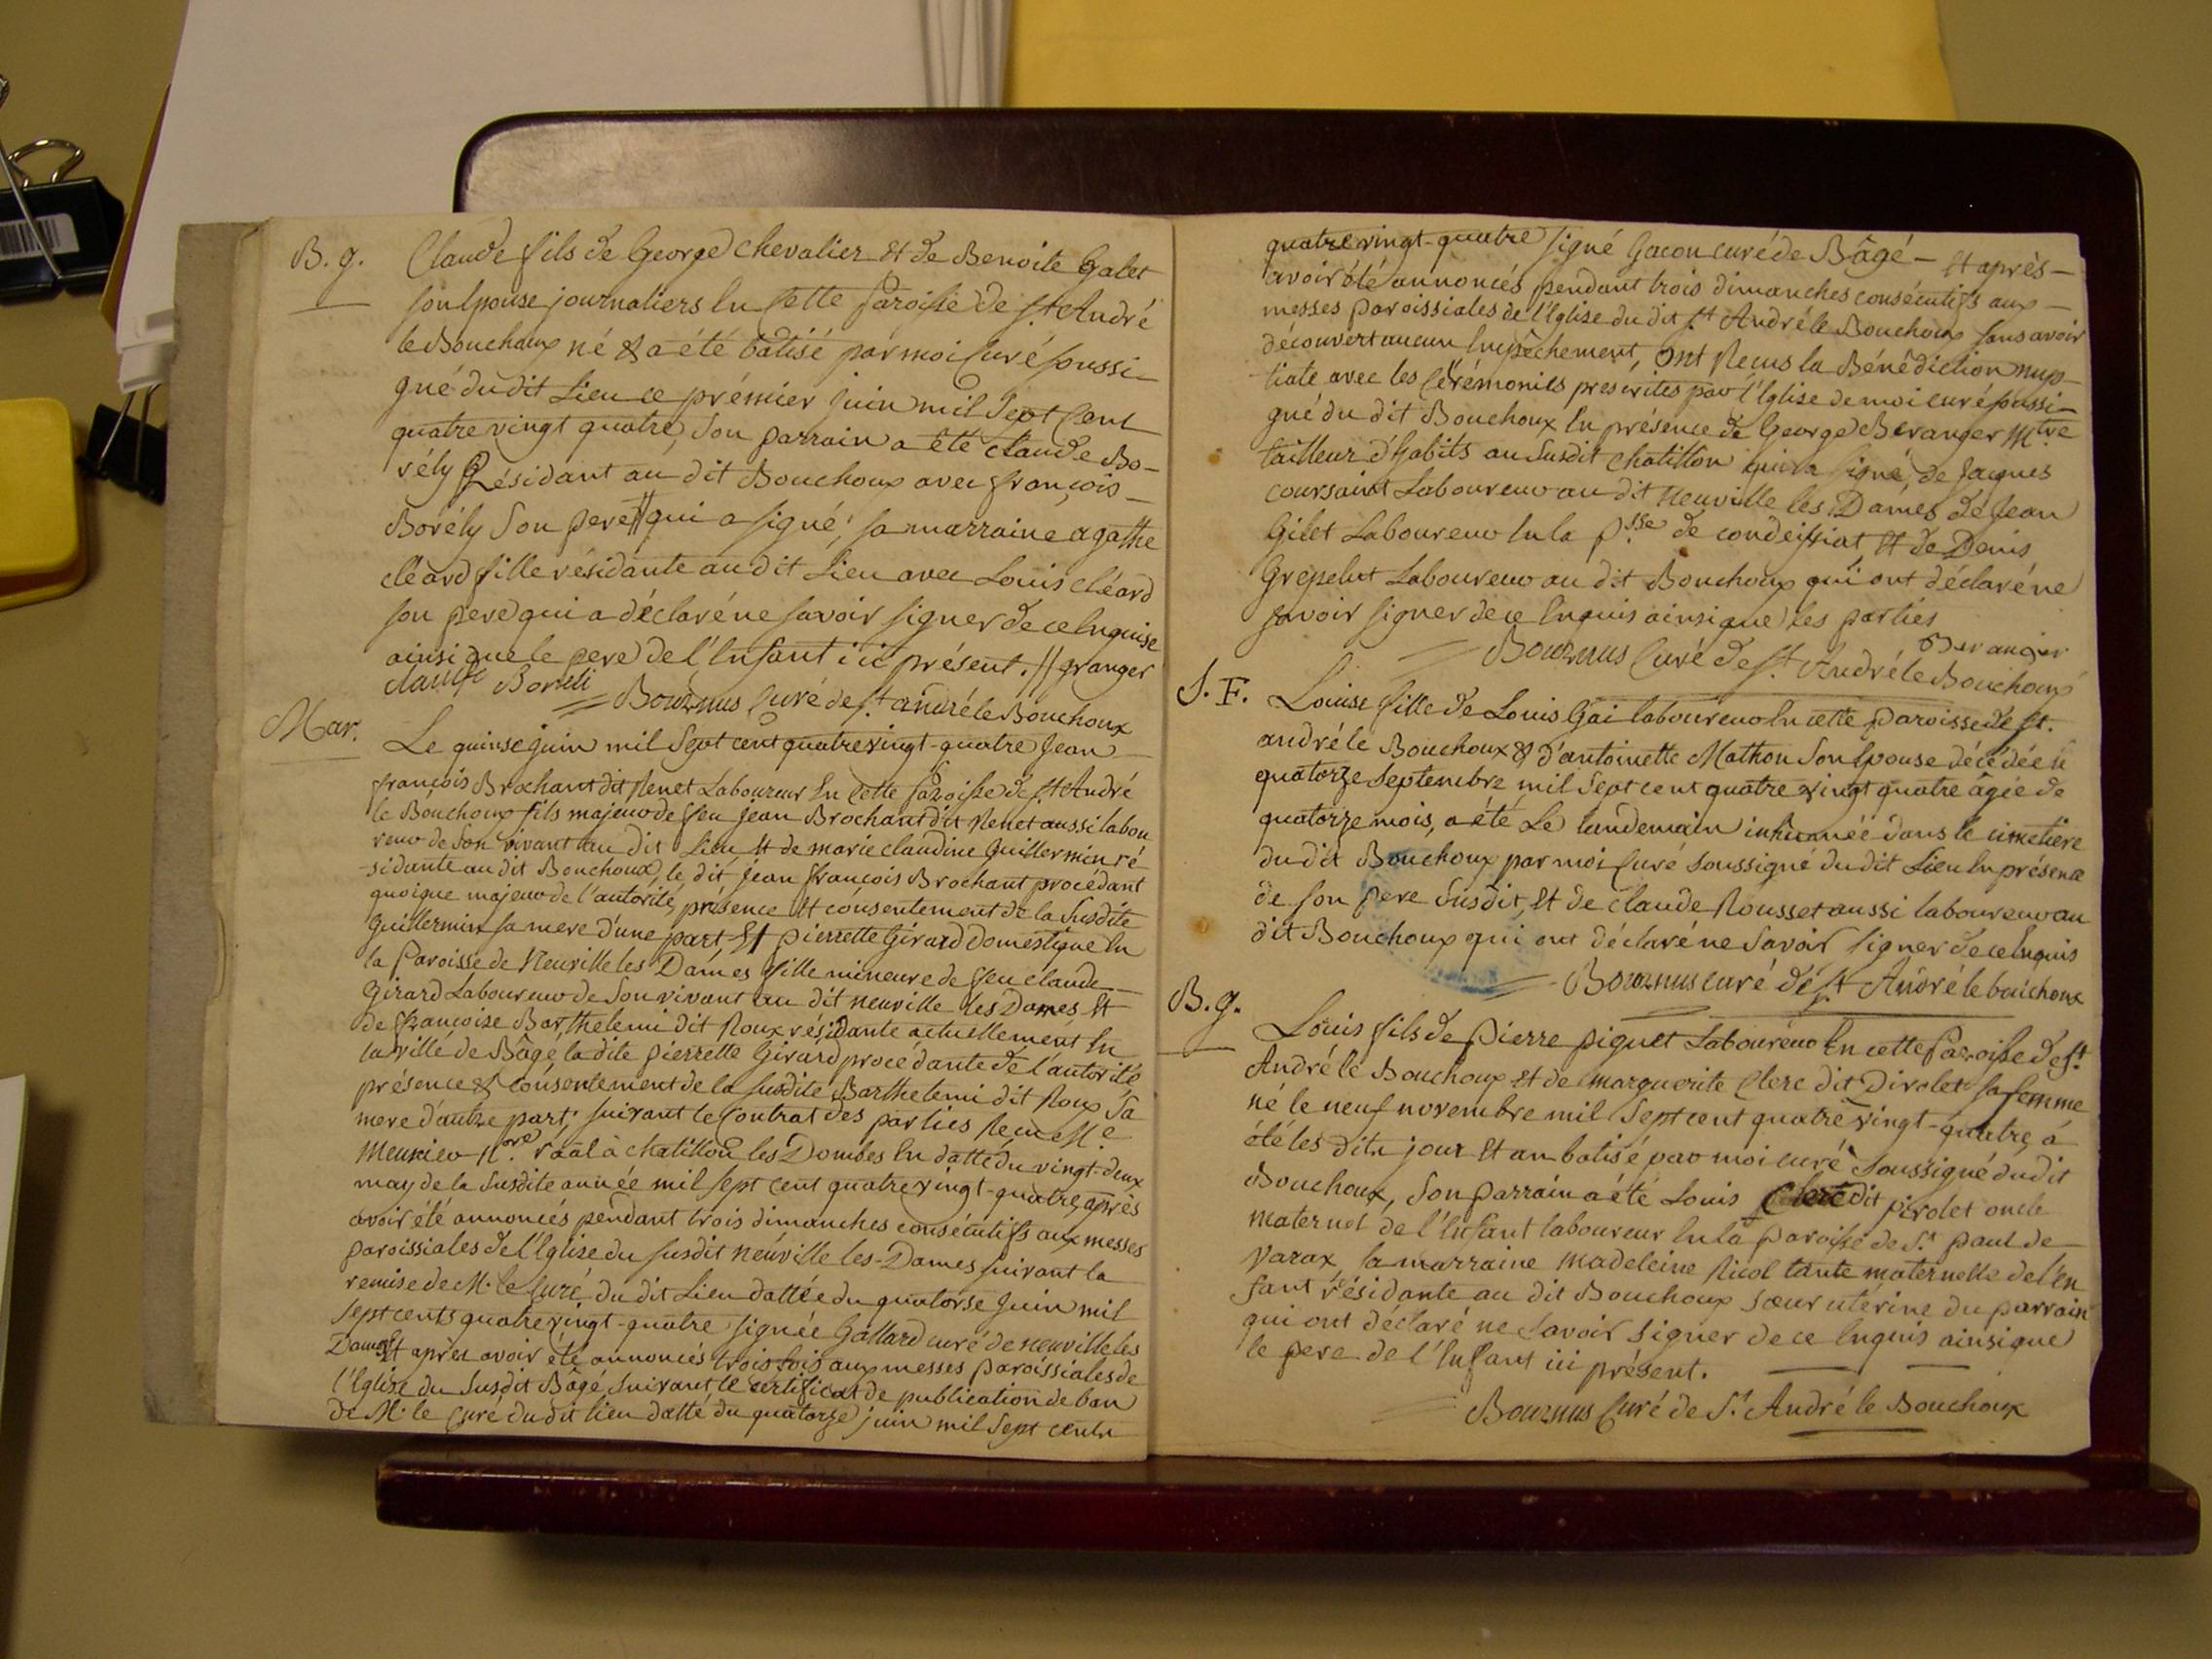 B. g.
Claude fils de George Chevalier Et de Benoite Galet
son Epouse journaliers En Cette Paroisse de St. André
le Bouchoux né & a été batisé par moi Curé soussi-
gné du dit Lieu ce prémier juin mil Sept Cent
quatre vingt quatre, Son parrain a été Claude Bo-
rély Résidant au dit Bouchoux avec françois
Borély Son pere // qui a signé, sa marraine agathe
cléard fille résidante audit Lieu avec Louis cléard
son pere qui a déclaré ne savoir signer de ce Enquise
ainsi que le pere de l'Enfant ici présent. // granger
claude Borreli
Bournus Curé de St. andré le Bouchoux
Mar.
Le quinse juin mil Sept cent quatre vingt-quatre Jean
françois Brochant dit Renet Laboureur En Cette Paroisse de St. André
le Bouchoux fils majeur de feu jean Brochant dit Renet aussi labou
reur de Son vivant au dit Lieu Et de marie claudine Guillermin ré-
-sidante au dit Bouchoux, le dit jean françois Brochant procédant
quoique majeur de l'autorité, présence Et consentement de la Susdite
Guillermin sa mere d'une part Et pierrette Girard Domestique En
la Paroisse de Neuville les Dames fille mineure de feu claude
Girard Laboureur de Son vivant au dit neuville les Dames Et
de françoise Barthelemi dit Roux résidante actuellement En
la ville de Bâgé, la dite pierrette Girard procédante de l'autorité
présence & consentement de la susdite Barthelemi dit Roux Sa
mere d'autre part, suivant le Contrat des parties Recu Me.
Meunier Nre. roial à chatillon les Dombes En datte du vingt-deux
may de la Susdite année mil sept cent quatre vingt-quatre, après
avoir été annoncés pendant trois dimanches consécutifs aux messes
paroissiales de l'Eglise du susdit neuville les-Dames suivant la
remise de M. le Curé du dit Lieu dattée du quatorse juin mil
sept cents quatre vingt-quatre signée Gallard curé de neuville les
Dames Et après avoir été annoncés trois fois aux messes paroissiales de
l'Eglise du Susdit Bâgé, Suivant le certificat de publication de ban
de M. le Curé du dit lieu datté du quatorze juin mil Sept cents
quatre vingt-quatre signé Gacon curé de Bâgé — Et après —
avoir été annoncés pendant trois dimanches consécutifs aux —
messes paroissiales de l'Eglise du dit St. André le Bouchoux sans avoir
découvert aucun Empêchement, Ont Recus la Bénédiction nup-
tiale avec les Cérémonies prescrites par l'Eglise de moi curé soussi-
gné du dit Bouchoux En présence de George Beranger Mtre
tailleur d'habits au Susdit chatillon qui a signé, de Jaques
coursaint Laboureur au dit neuville les Dames de Jean
Gilet Laboureur En la Psse. de condeissiat Et de Denis
Grépelut Laboureur au dit Bouchoux qui ont déclaré ne
savoir signer de ce Enquis ainsi que les parties
Beranger
Bournus Curé de St. André le Bouchoux
S. F.
Louise fille de Louis Gai laboureur En cette Paroisse de St.
andré le Bouchoux & d'antoinette Mathon Son Epouse décédée le
quatorze Septembre mil Sept cent quatre vingt quatre âgée de
quatorze mois, a été Le landemain inhumée dans le cimetiere
du dit Bouchoux par moi Curé soussigné du dit Lieu En présence
de son pere Susdit, Et de claude Rousset aussi laboureur au
dit Bouchoux qui ont déclaré ne Savoir signer de ce Enquis
Bournus curé de St. André le bouchoux
B. g.
Louis fils de Pierre piquet Laboureur En cette Paroisse de St.
André le Bouchoux Et de marguerite Clerc dit Pirolet sa femme
né le neuf novembre mil Sept cent quatre vingt-quatre, a
été les dits jour Et an batisé par moi curé Soussigné du dit
Bouchoux, Son parrain a été Louis Clerc dit pirolet oncle
maternel de l'Enfant laboureur En la paroisse de St. paul de
Varax, sa marraine madeleine Ricol tante maternelle de l'en
fant résidante au dit Bouchoux sœur utérine du parrain
qui ont déclaré ne savoir signer de ce Enquis ainsique
le pere de l'Enfant ici présent.
Bournus Curé de St. André le Bouchoux